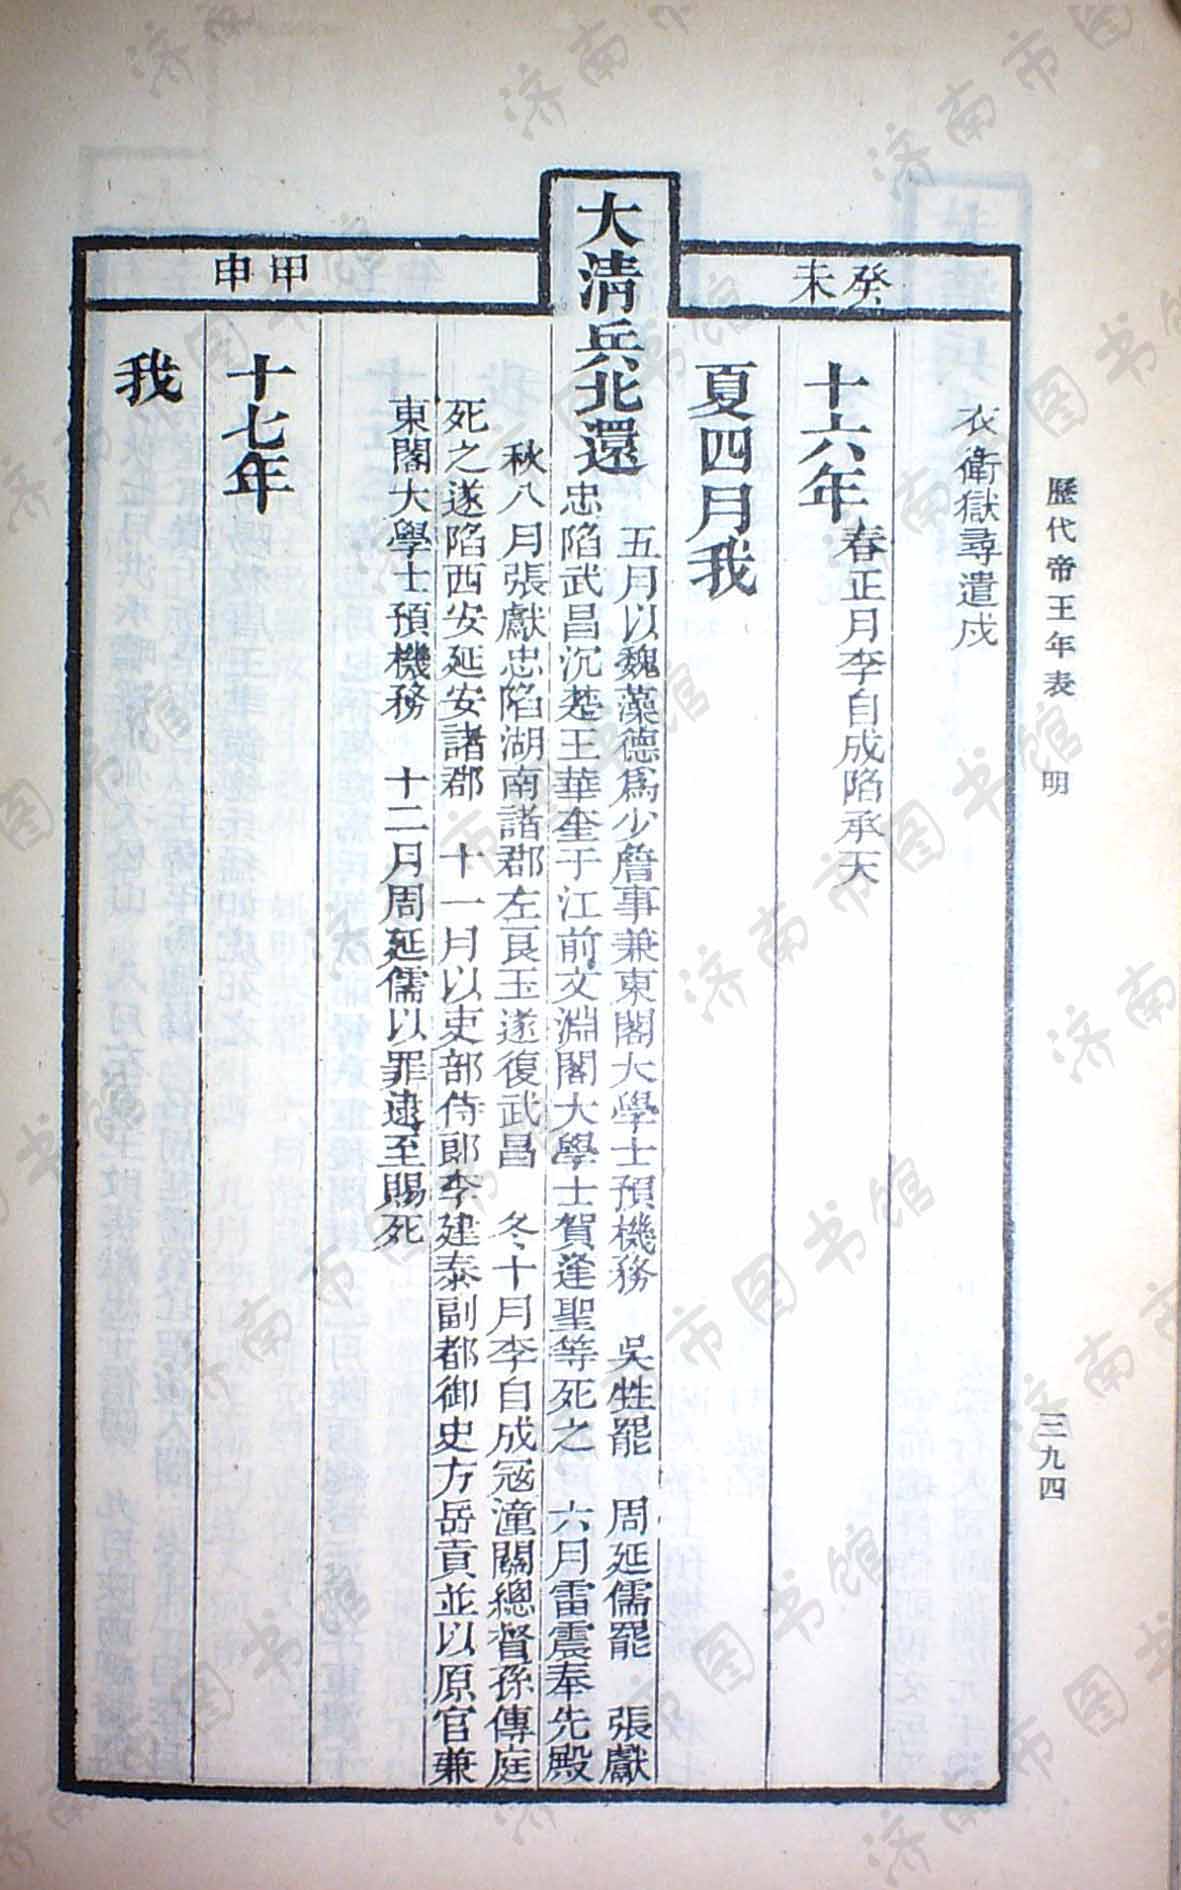 歷代帝王年表 明 三九四
癸未
衣衛獄尋遣戍
十六年 春正月李自成陷承天
夏四月我
大清兵北還
五月以魏藻德爲少詹事兼東閣大學士預機務 吳甡罷 周延儒罷 張獻
忠陷武昌沉楚王華奎于江前文淵閣大學士賀逢聖等死之 六月雷震奉先殿
秋八月張獻忠陷湖南諸郡左良玉遂復武昌 冬十月李自成寇潼關總督孫傳庭
死之遂陷西安延安諸郡 十一月以吏部侍郎李建泰副都御史方岳貢並以原官兼
東閣大學士預機務 十二月周延儒以罪逮至賜死
甲申
十七年
我
济南市图书馆